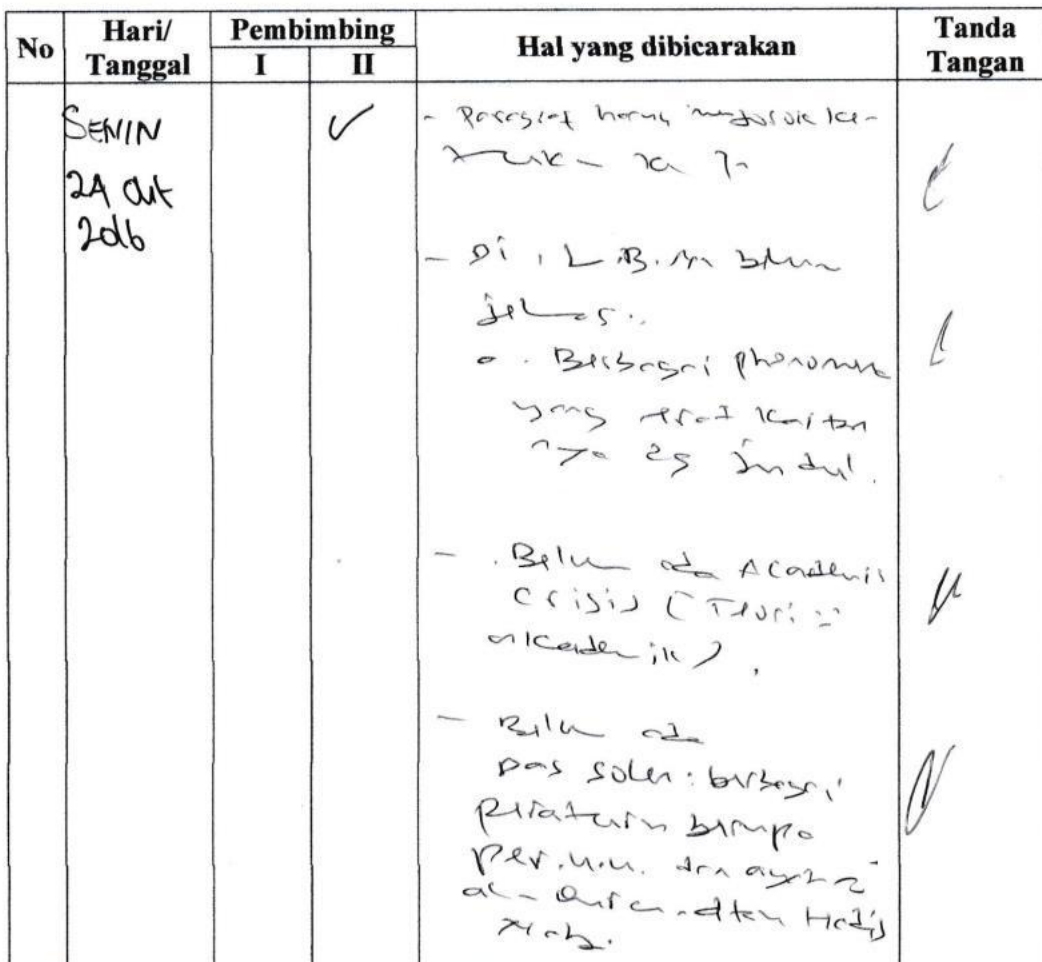 No Hari/ Tanggal Pembimbing I II Hal yang dibicarakan Tanda Tangan
SENIN
24 Okt
2016
- Paragraf harus
- Di L.B.M belum
jelas.
Berbagai phenomena
yang erat kaitan
nya dg judul.
- Belum ada Academic
Crisis (Teori
akademik).
- Belum ada
Das solen: berbagai
peraturan berupa
per.u.u. dan ayat2
al-Quran dan Hadis